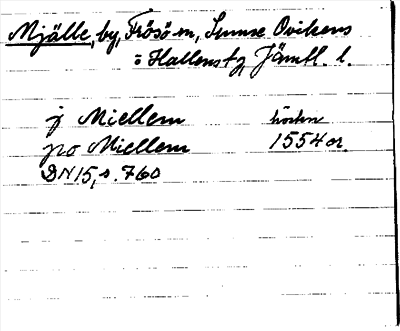 Mjälle, by, Frösö sn, Sunne Ovikens
o Hallens tg Jämtl. l.
j Miellem hösten
po Miellem 1554 or.
DN 15, s. 760